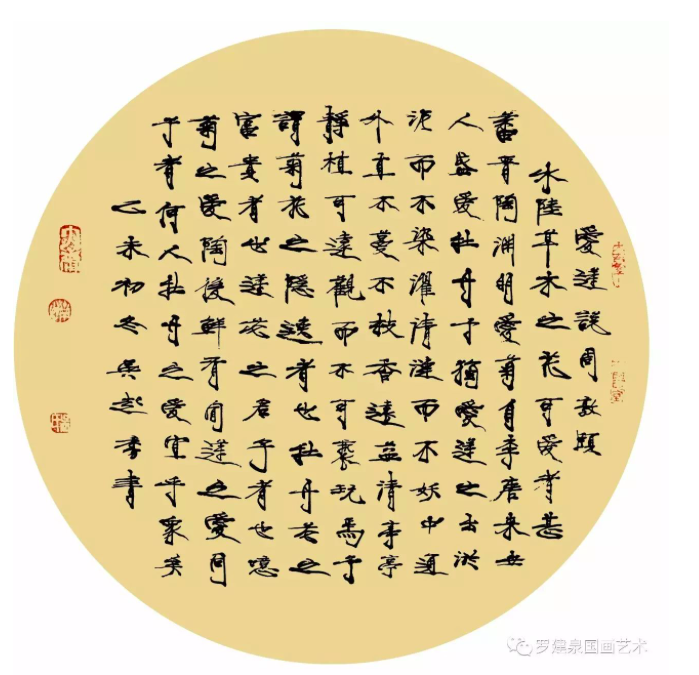 愛蓮説周敦頤
水陸草木之花可愛者甚
蕃晋陶渊明愛菊自李唐来世
人盛愛牡丹予獨愛蓮之出淤
泥而不染濯清漣而不妖中通
外直不蔓不枝香遠益清亭亭
靜植可遠觀而不可褻玩焉予
謂菊花之隱逸者也牡丹花之
富貴者也蓮花之君子者也噫
菊之愛陶後鮮有聞蓮之愛同
予者何人牡丹之愛宜乎衆矣
乙未初冬吳起書
罗煌泉国画艺术